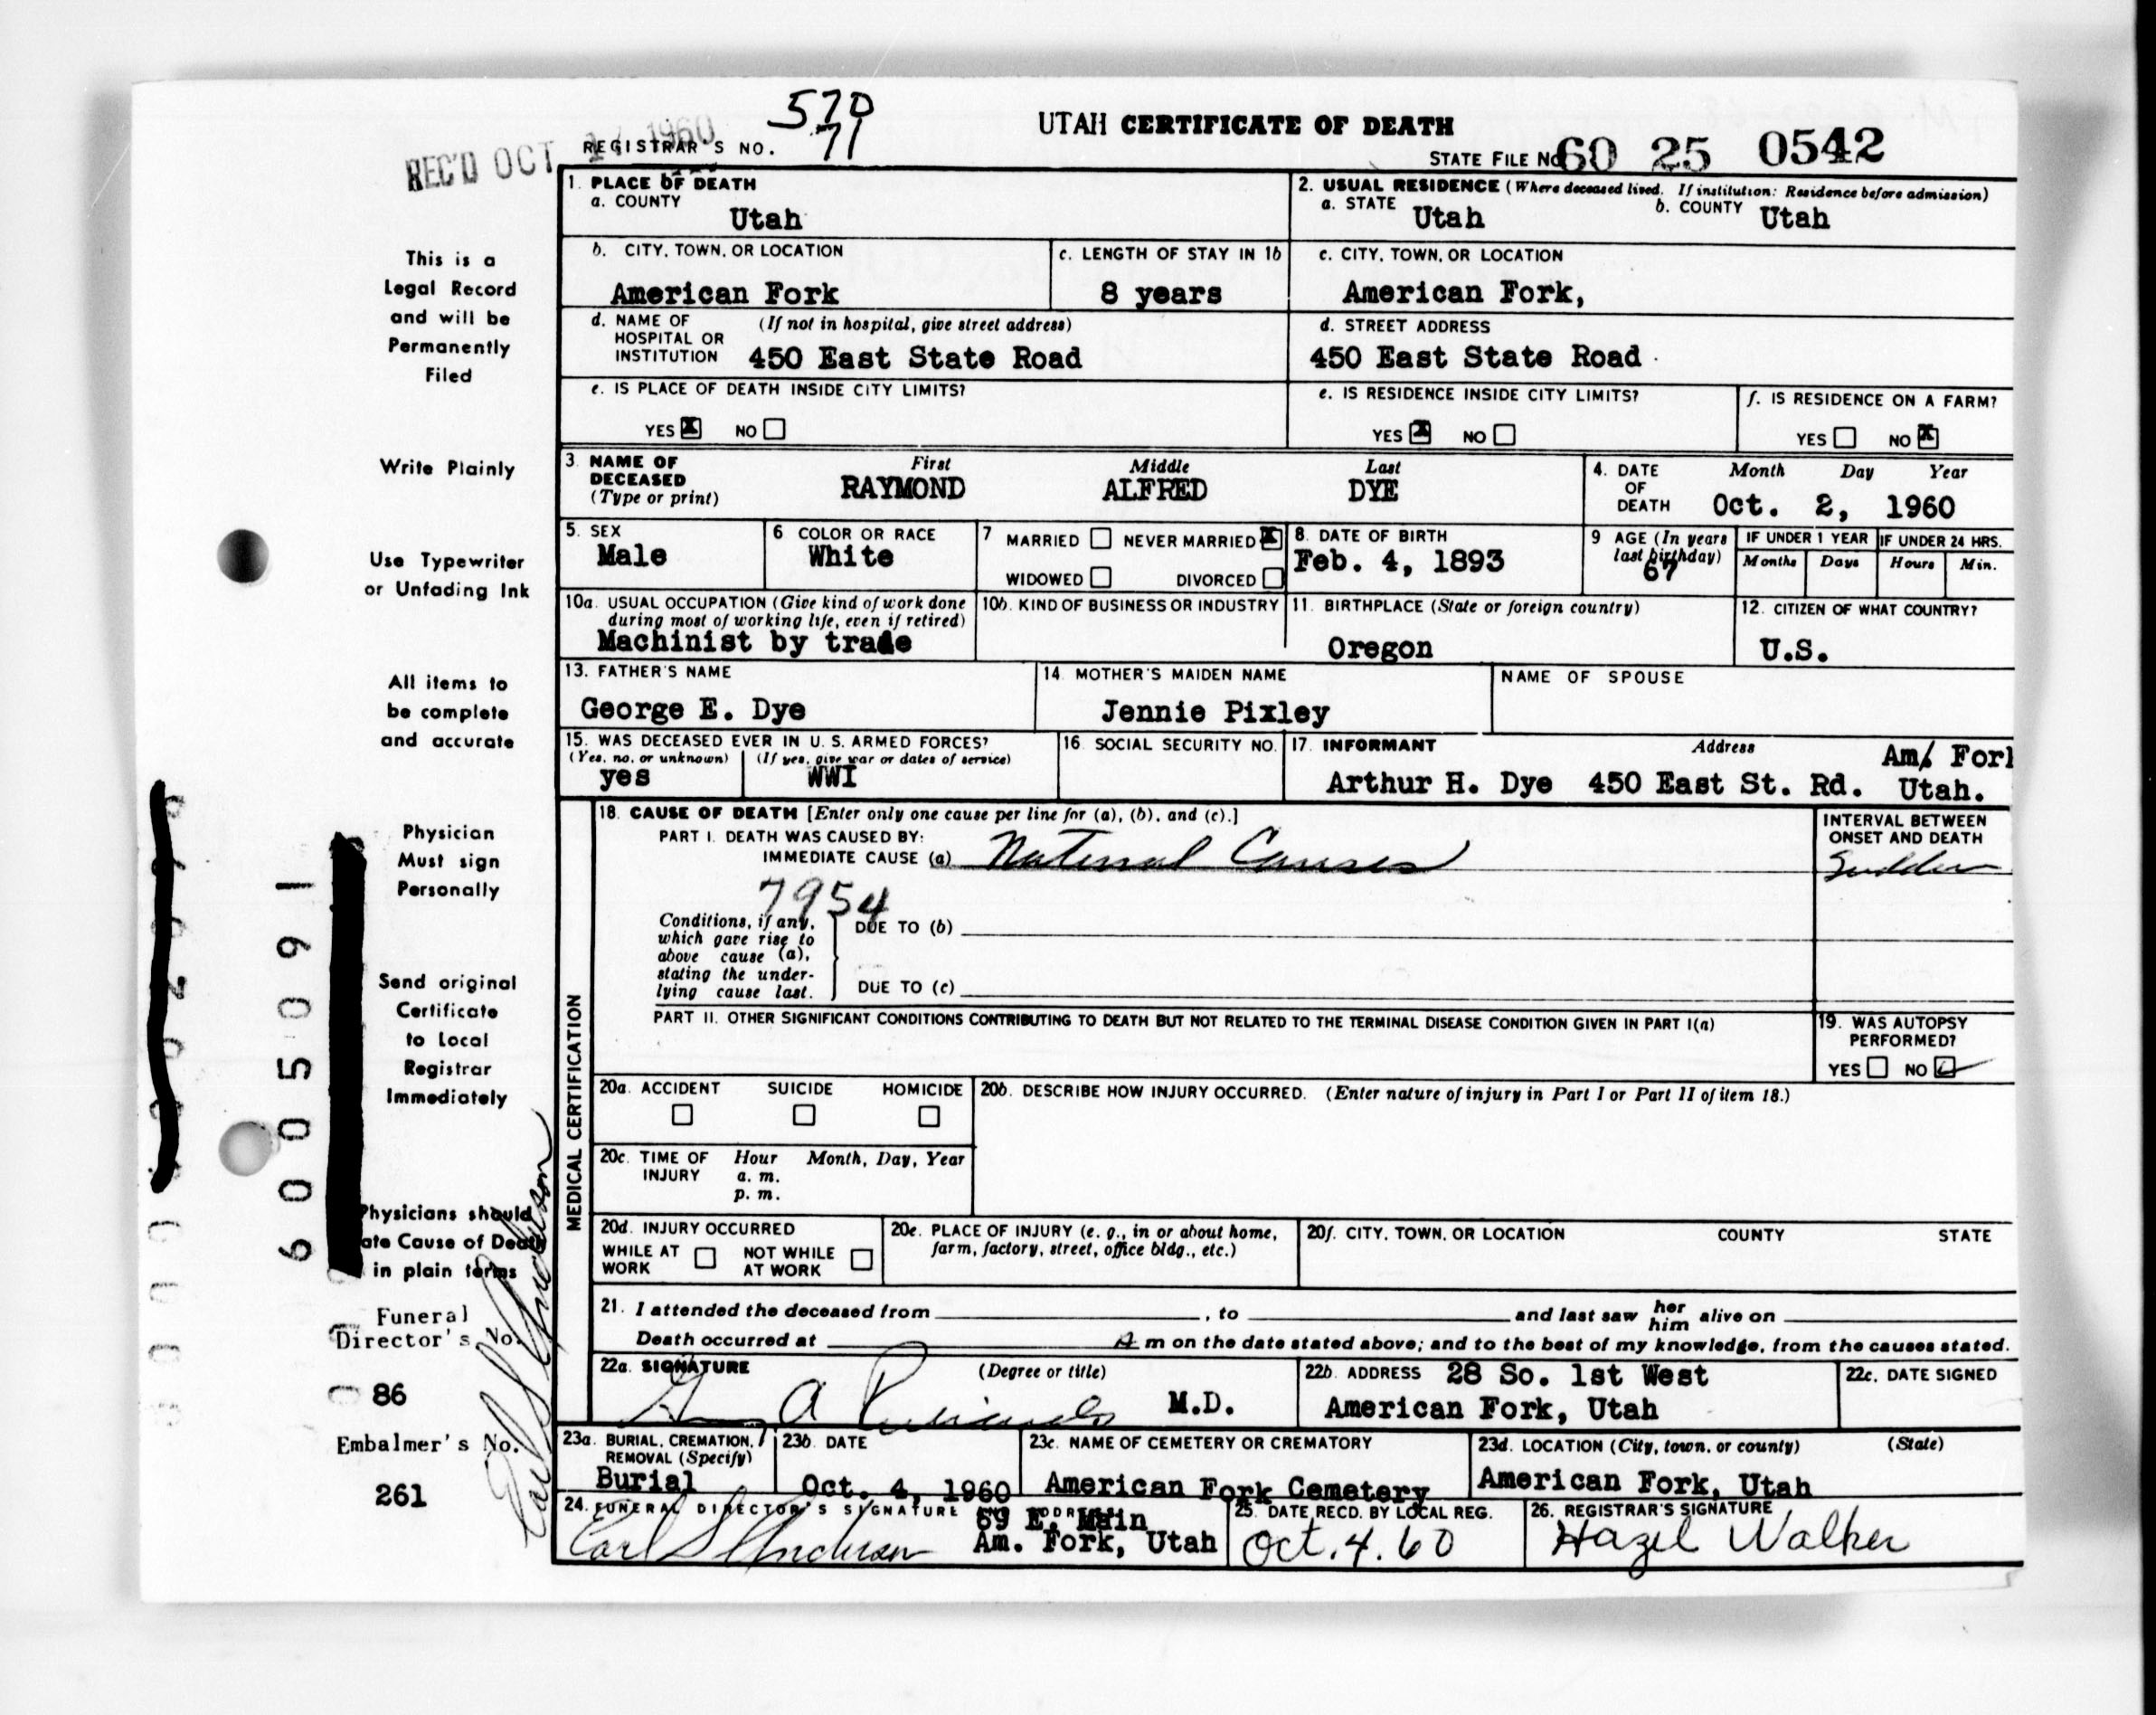 570
REC'D OCT 17 1960 REGISTRAR'S NO. 71
UTAH CERTIFICATE OF DEATH
STATE FILE No. 60 25 0542
This is a
Legal Record
and will be
Permanently
Filed
Write Plainly
Use Typewriter
or Unfading Ink
All items to
be complete
and accurate
Physician
Must sign
Personally
Send original
Certificate
to Local
Registrar
Immediately
Physicians should
ate Cause of Death
in plain terms
Funeral
Director's No.
86
Embalmer's No.
261
6005091
Carl S Anderson
1. PLACE OF DEATH
a. COUNTY
Utah
2. USUAL RESIDENCE (Where deceased lived. If institution: Residence before admission)
a. STATE Utah b. COUNTY Utah
b. CITY, TOWN, OR LOCATION
American Fork
c. LENGTH OF STAY IN 1b
8 years
c. CITY, TOWN, OR LOCATION
American Fork,
d. NAME OF (If not in hospital, give street address)
HOSPITAL OR
INSTITUTION 450 East State Road
d. STREET ADDRESS
450 East State Road
e. IS PLACE OF DEATH INSIDE CITY LIMITS?
YES X NO
e. IS RESIDENCE INSIDE CITY LIMITS?
YES X NO
f. IS RESIDENCE ON A FARM?
YES NO X
3. NAME OF First Middle Last
DECEASED RAYMOND ALFRED DYE
(Type or print)
4. DATE Month Day Year
OF
DEATH Oct. 2, 1960
5. SEX
Male
6 COLOR OR RACE
White
7 MARRIED NEVER MARRIED X
WIDOWED DIVORCED
8. DATE OF BIRTH
Feb. 4, 1893
9 AGE (In years
last birthday)
67
IF UNDER 1 YEAR IF UNDER 24 HRS.
Months Days Hours Min.
10a. USUAL OCCUPATION (Give kind of work done
during most of working life, even if retired)
Machinist by trade
10b. KIND OF BUSINESS OR INDUSTRY
11. BIRTHPLACE (State or foreign country)
Oregon
12. CITIZEN OF WHAT COUNTRY?
U.S.
13. FATHER'S NAME
George E. Dye
14. MOTHER'S MAIDEN NAME
Jennie Pixley
NAME OF SPOUSE
15. WAS DECEASED EVER IN U. S. ARMED FORCES?
(Yes, no, or unknown) (If yes, give war or dates of service)
yes WWI
16. SOCIAL SECURITY NO.
17. INFORMANT Address Am/ Fork
Arthur H. Dye 450 East St. Rd. Utah.
MEDICAL CERTIFICATION
18. CAUSE OF DEATH [Enter only one cause per line for (a), (b), and (c).]
PART I. DEATH WAS CAUSED BY:
IMMEDIATE CAUSE (a) Natural Causes
INTERVAL BETWEEN
ONSET AND DEATH
Sudden
7954
Conditions, if any,
which gave rise to
above cause (a),
stating the under-
lying cause last.
DUE TO (b)
DUE TO (c)
PART II. OTHER SIGNIFICANT CONDITIONS CONTRIBUTING TO DEATH BUT NOT RELATED TO THE TERMINAL DISEASE CONDITION GIVEN IN PART I(a)
19. WAS AUTOPSY
PERFORMED?
YES NO
20a. ACCIDENT SUICIDE HOMICIDE
20b. DESCRIBE HOW INJURY OCCURRED. (Enter nature of injury in Part I or Part II of item 18.)
20c. TIME OF Hour Month, Day, Year
INJURY a. m.
p. m.
20d. INJURY OCCURRED
WHILE AT NOT WHILE
WORK AT WORK
20e. PLACE OF INJURY (e. g., in or about home,
farm, factory, street, office bldg., etc.)
20f. CITY, TOWN, OR LOCATION COUNTY STATE
21. I attended the deceased from , to and last saw her him alive on
Death occurred at A m on the date stated above; and to the best of my knowledge, from the causes stated.
22a. SIGNATURE (Degree or title)
M.D.
22b. ADDRESS 28 So. 1st West
American Fork, Utah
22c. DATE SIGNED
23a. BURIAL, CREMATION,
REMOVAL (Specify)
Burial
23b. DATE
Oct. 4, 1960
23c. NAME OF CEMETERY OR CREMATORY
American Fork Cemetery
23d. LOCATION (City, town, or county) (State)
American Fork, Utah
24. FUNERAL DIRECTOR'S SIGNATURE ADDRESS
69 E. Main
Carl S Anderson Am. Fork, Utah
25. DATE RECD. BY LOCAL REG.
Oct. 4. 60
26. REGISTRAR'S SIGNATURE
Hazel Walker